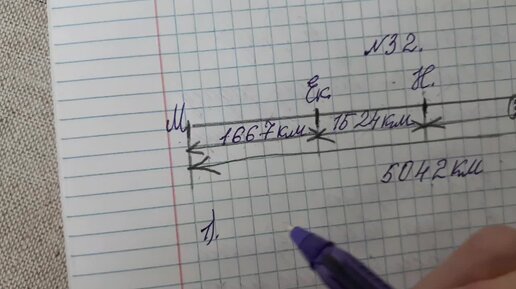 N32.
М Ек Н.
1667км 1524км
5042км
1).